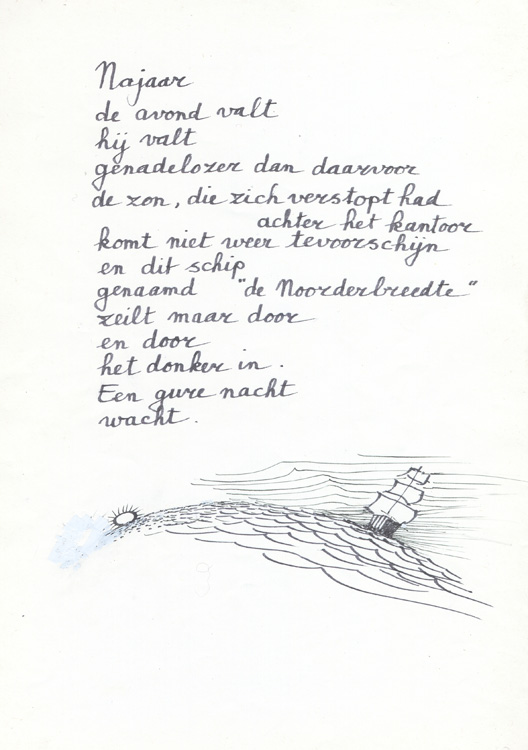 Najaar
de avond valt
hij valt
genadelozer dan daarvoor
de zon, die zich verstopt had
achter het kantoor
komt niet weer tevoorschijn
en dit schip
genaamd "de Noorderbreedte"
zeilt maar door
en door
het donker in.
Een gure nacht
wacht.